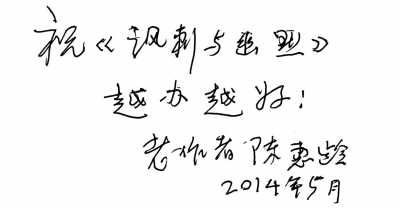 祝《讽刺与幽默》
越办越好!
老作者 陈惠龄
2014年5月